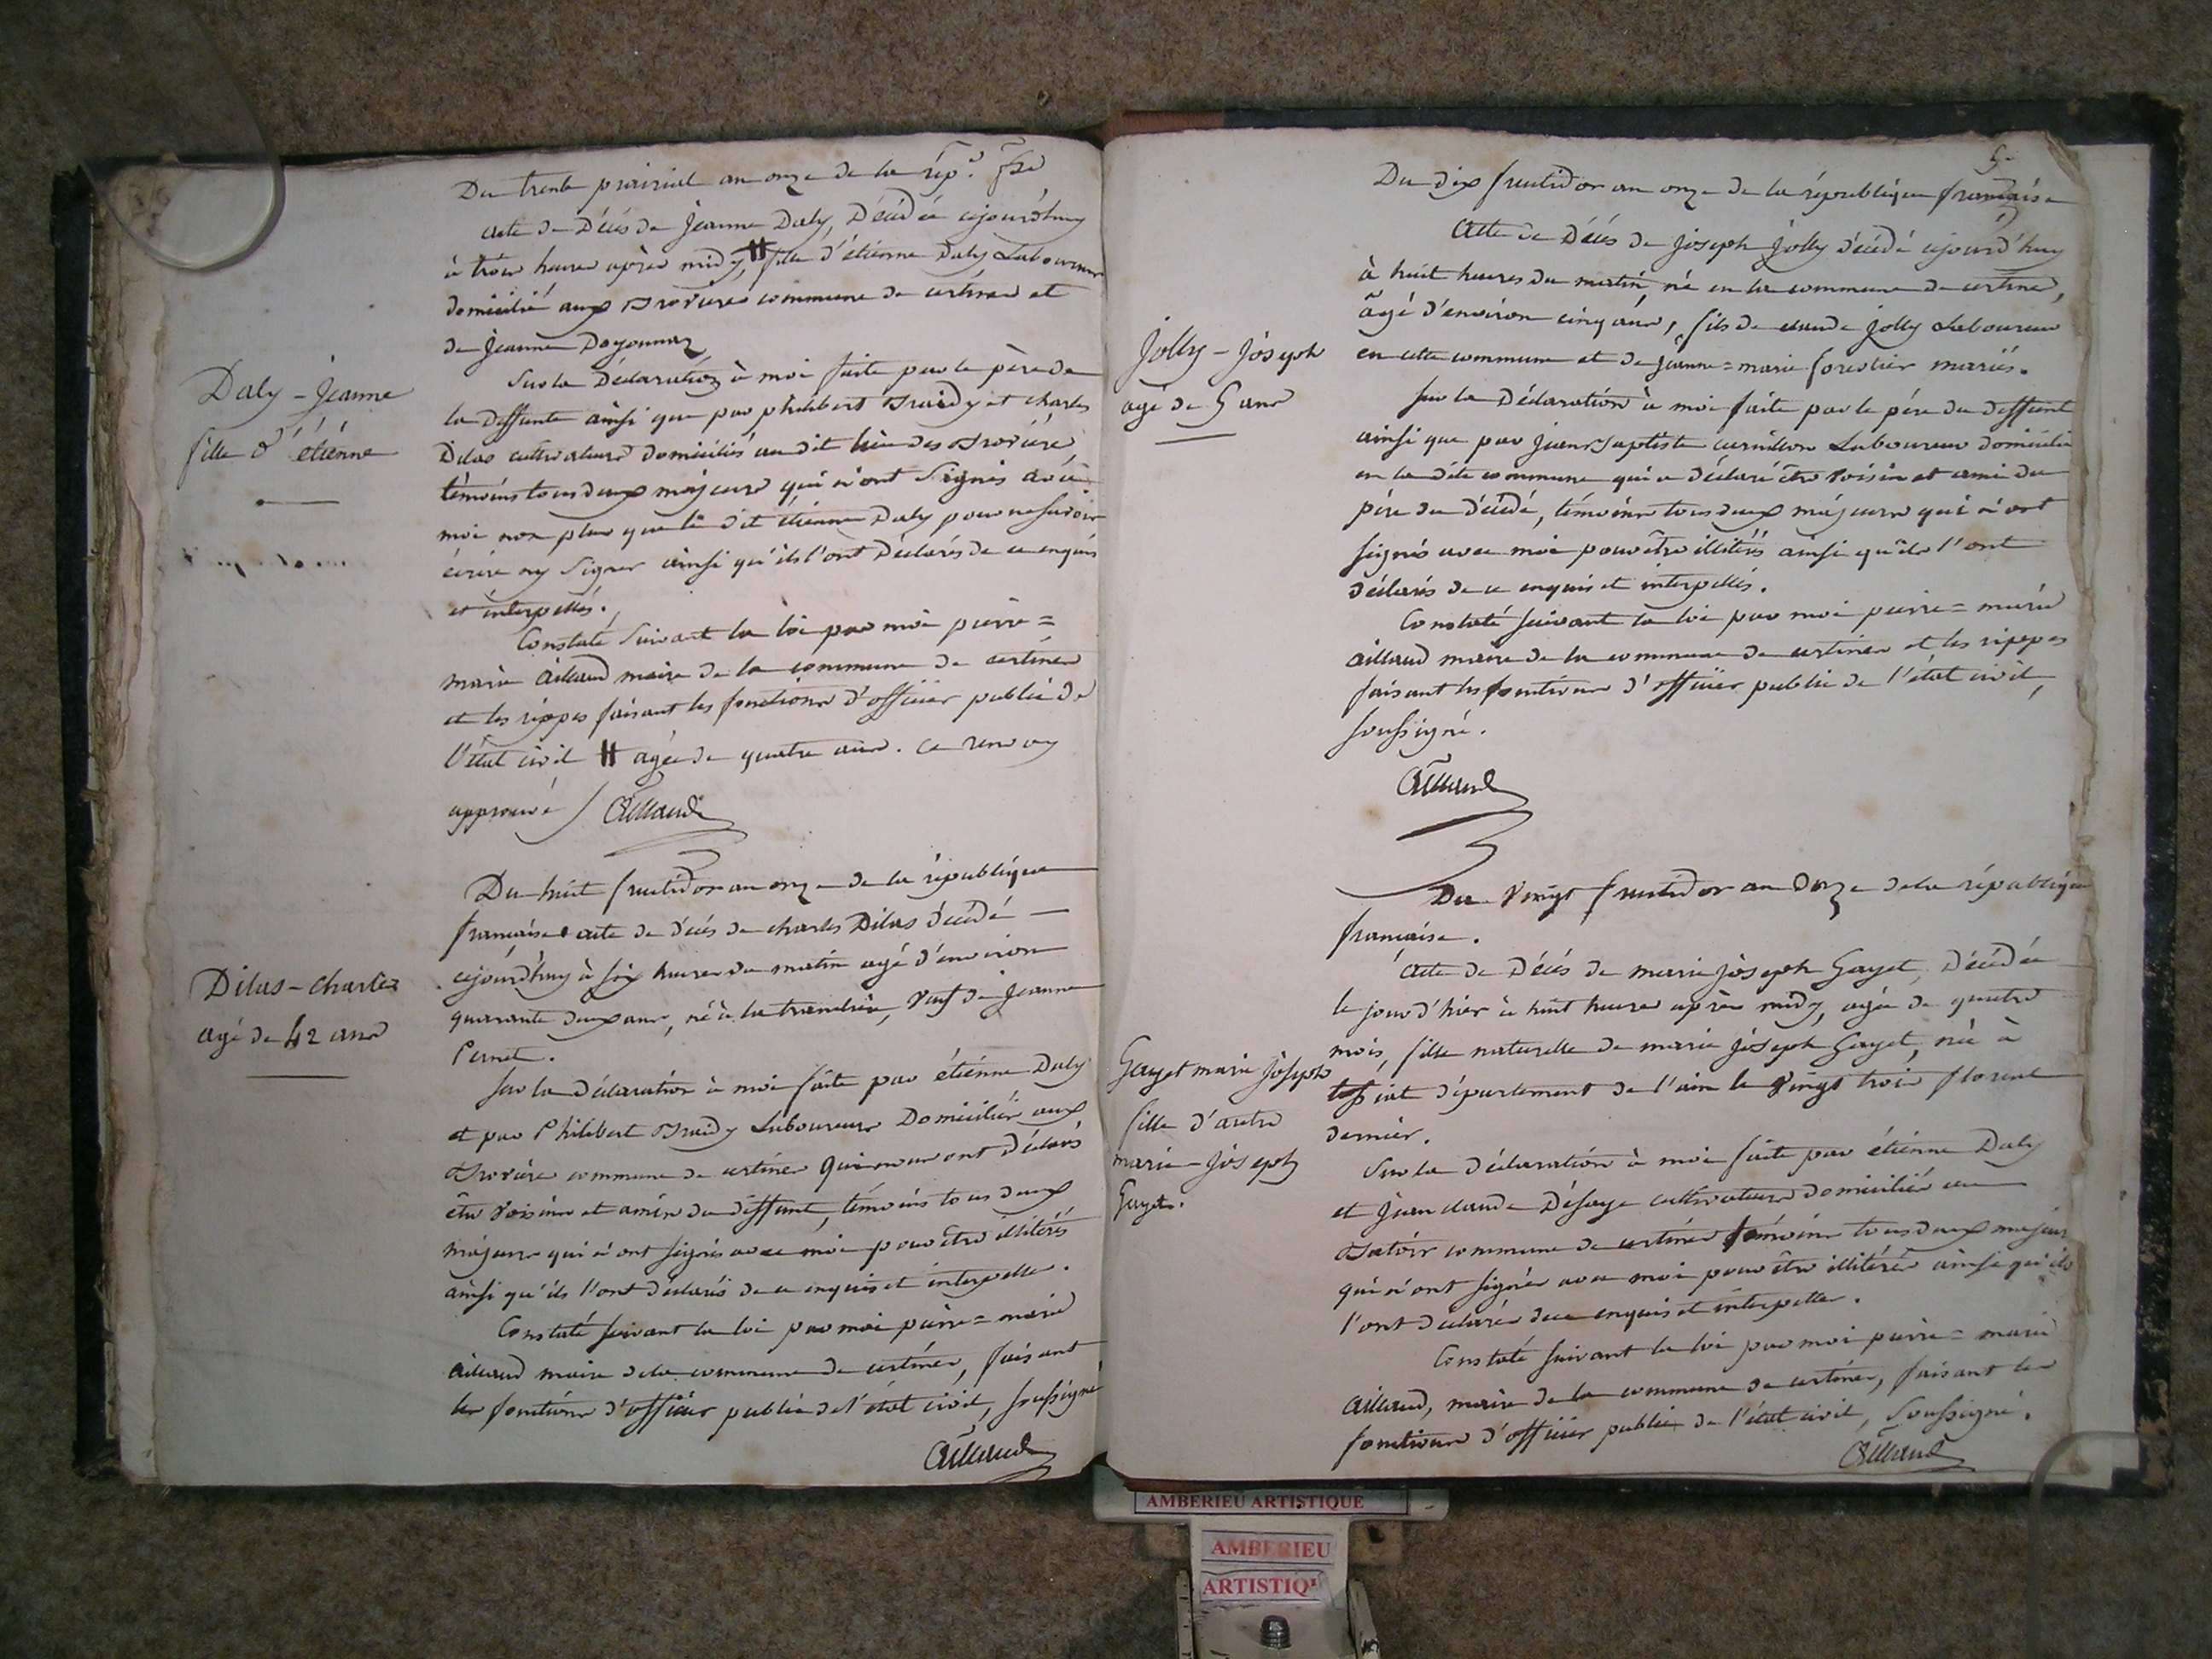 Du trente prairial an onze de la rép.e fse
acte de Décès de Jeanne Daly, Décédée cejourd'huy
à trois heures après midy, # fille d'étienne Daly Laboureur
domicilié aux commune de certines et
de Jeanne Doyonnaz
Daly - Jeanne
fille d'étienne
Sur la Déclaration à moi faite par le père de
la deffunte ainsi que par philibert et charles
Dilas cultivateurs domiciliés au dit lieu des
témoins tous deux majeurs qui n'ont Signés avec
moi non plus que le dit étienne Daly pour ne savoir
écrire ny Signer ainsi qu'ils l'ont Déclarés de ce enquis
et interpellés.
Constaté Suivant la loi par moi pierre =
marie Aillaud maire de la commune de certines
et les rippes faisant les fonctions d'officier public de
l'état civil # agée de quatre ans. ce renvoy
approuvé / Aillaud
Du huit fructidor an onze de la république
française acte de décès de charles Dilas décédé
cejourd'huy à six heures du matin agé d'environ
quarante deux ans, né à la tranclière, veuf de Jeanne
Pernet.
Dilas - charles
agé de 42 ans
Sur la déclaration à moi faite par étienne Daly
et par Philibert Laboureurs Domiciliés aux
commune de certines qui nous ont déclarés
être voisins et amis du deffunt, témoins tous deux
majeurs qui n'ont signés avec moi pour être illitérés
ainsi qu'ils l'ont déclarés de ce enquis et interpellés.
Constaté suivant la loi par moi pierre = marie
aillaud maire de la commune de certines, faisant
les fonctions d'officier public de l'état civil, soussigné
Aillaud
5.
Du dix fructidor an onze de la république française
Acte de Décès de Joseph Jolly décédé cejourd'huy
à huit heures du matin, né en la commune de certines,
âgé d'environ cinq ans, fils de claude Jolly Laboureur
en cette commune et de Jeanne = marie forestier mariés.
Jolly - Joseph
agé de 5 ans
Sur la Déclaration à moi faite par le père du deffunt
ainsi que par Jean Baptiste Laboureur domicilié
en la dite commune qui a déclaré être voisin et ami du
père du décédé, témoins tous deux majeurs qui n'ont
signés avec moi pour être illitérés ainsi qu'ils l'ont
déclarés de ce enquis et interpellés.
Constaté suivant la loi par moi pierre = marie
aillaud maire de la commune de certines et les rippes
faisant les fonctions d'officier public de l'état civil,
soussigné.
Aillaud
Du vingt fructidor an onze de la république
française.
Acte de Décès de marie Joseph Gayet, Décédée
le jour d'hier à huit heures après midy, agée de quatre
mois, fille naturelle de marie Joseph Gayet, née à
département de l'ain le vingt trois floreal
dernier.
Gayet marie Joseph
fille d'autre
marie - Joseph
Gayet.
Sur la déclaration à moi faite par étienne Daly
et Jean claude cultivateurs domiciliés au
commune de certines témoins tous deux majeurs
qui n'ont signés avec moi pour être illitérés ainsi qu'ils
l'ont déclarés de ce enquis et interpellés.
Constaté suivant la loi par moi pierre = marie
Aillaud, maire de la commune de certines, faisant les
fonctions d'officier public de l'état civil, Soussigné.
Aillaud
AMBERIEU ARTISTIQUE
AMBERIEU
ARTISTIQU